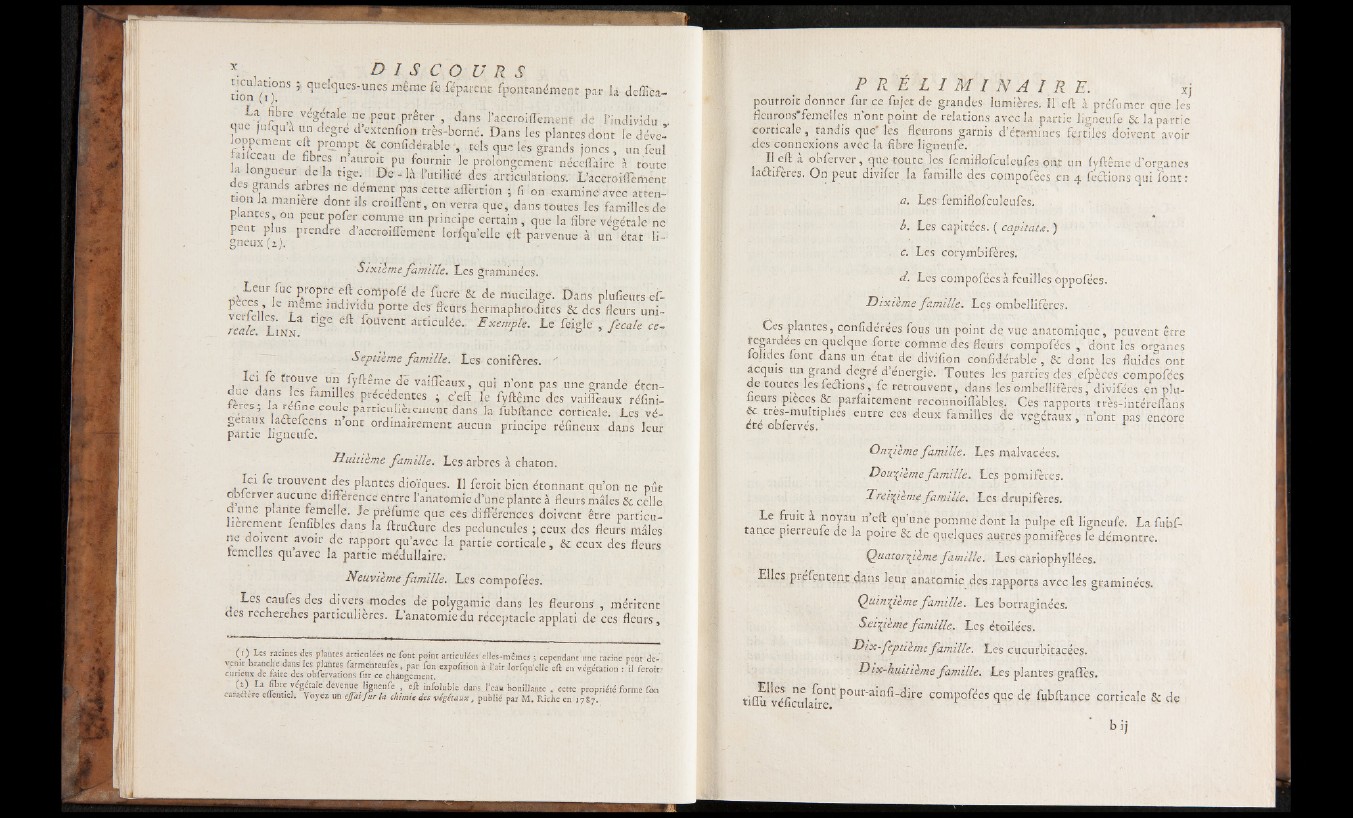 x DISCOURS
ticulations ; quelques-unes même ſe ſéparent ſpontanément par la deſſica-
tion (1).
La fibre végétale ne peut prêter , dans l'accroiſſement de l'individu ,
que juſqu'à un degré d'extenſion très-borné. Dans les plantes dont le déve-
loppement eſt prompt & conſidérable , tels que les grands joncs , un ſeul
faiſceau de fibres n'auroit pu fournir le prolongement néceſſaire à toute
la longueur de la tige. De-là l'utilité des articulations. L'accroiſſement
des grands arbres ne dément pas cette aſſertion ; ſi on examine avec atten-
tion la manière dont ils croiſſent, on verra que, dans toutes les familles de
plantes, on peut poſer comme un principe certain , que la fibre végétale ne
peut plus prendre d'accroiſſement lorſqu'elle eſt parvenue à un état li-
gneux (2).
Sixième famille. Les graminées.
Leur ſuc propre eſt compoſé de ſucre & de mucilage. Dans pluſieurs eſ-
pèces , le même individu porte des fleurs hermaphrodites & des fleurs uni-
verſelles. La tige eſt ſouvent articulée. Exemple. Le ſeigle , ſecale ce-
reale. LINN.
Septième famille. Les conifères.
Ici ſe trouve un ſyſtême de vaiſſeaux, qui n'ont pas une grande éten-
due dans les familles précédentes ; c'eſt le ſyſtême des vaiſſeaux réſini-
fères ; la réſine coule particulièrement dans la ſubſtance corticale. Les vé-
gétaux lacteſcens n'ont ordinairement aucun principe réſineux dans leur
partie ligneuſe.
Huitième famille. Les arbres à chaton.
Ici ſe trouvent des plantes dioïques. Il ſeroit bien étonnant qu'on ne pût
obſerver aucune différence entre l'anatomie d'une plante à fleurs mâles & celle
d'une plante femelle. Je préſume que ces différences doivent être particu-
lièrement ſenſibles dans la ſtructure des peduncules ; ceux des fleurs mâles
ne doivent avoir de rapport qu'avec la partie corticale, & ceux des fleurs
femelles qu'avec la partie médullaire.
Neuvième famille. Les compoſées.
Les cauſes des divers modes de polygamie dans les fleurons , méritent
des recherches particulières. L'anatomie du réceptacle applati de ces fleurs,
(1) Les racines des plantes articulées ne ſont point articulées elles-mêmes ; cependant une racine peut de-
venir branche dans les plantes ſarmenteuſes, par ſon expoſition à l'air lorſqu'elle eſt en végétation : il ſeroit
curieux de faire des obſervations ſur ce changement.
(2) La fibre végétale devenue ligneuſe , eſt inſoluble dans l'eau bouillante , cette propriété forme ſon
caractère eſſentiel. Voyez un eſſai ſur la chimie des végétaux, publié par M. Riche en 1787.
PRÉLIMINAIRE. xj
pourroit donner ſur ce ſujet de grandes lumières. Il eſt à préſumer que les
fleurons femelles n'ont point de relations avec la partie ligneuſe & la partie
corticale, tandis que les fleurons garnis d'étamines fertiles doivent avoir
des connexions avec la fibre ligneuſe.
Il eſt à obſerver, que toute les ſemifloſculeuſes ont un ſyſtême d'organes
lactifères. On peut diviſer la famille des compoſées en 4 ſections qui ſont :
a. Les ſemifloſculeuſes.
b. Les capitées. ( capitatæ. )
c. Les corymbifères.
d. Les compoſées à feuilles oppoſées.
Dixième famille. Les ombellifères.
Ces plantes, conſidérées ſous un point de vue anatomique, peuvent être
regardées en quelque ſorte comme des fleurs compoſées , dont les organes
ſolides ſont dans un état de diviſion conſidérable , & dont les fluides ont
acquis un grand degré d'énergie. Toutes les parties des eſpèces compoſées
de toutes les ſections, ſe retrouvent, dans les ombellifères, diviſées en plu-
ſieurs pièces & parfaitement reconnoiſſables. Ces rapports très-intéreſſans
& très-multipliés entre ces deux familles de végetaux, n'ont pas encore
été obſervés.
Onzième famille. Les malvacées.
Douzième famille. Les pomifères.
Treizième famille. Les drupifères.
Le fruit à noyau n'eſt qu'une pomme dont la pulpe eſt ligneuſe. La ſubſ-
tance pierreuſe de la poire & de quelques autres pomifères le démontre.
Quatorzième famille. Les cariophyllées.
Elles préſentent dans leur anatomie des rapports avec les graminées.
Quinzième famille. Les borraginées.
Seizième famille. Les étoilées.
Dix-ſeptième famille. Les cucurbitacées.
Dix-huitième famille. Les plantes graſſes.
Elles ne ſont pour-ainſi-dire compoſées que de ſubſtance corticale & de
tiſſu véſiculaire.
b ij